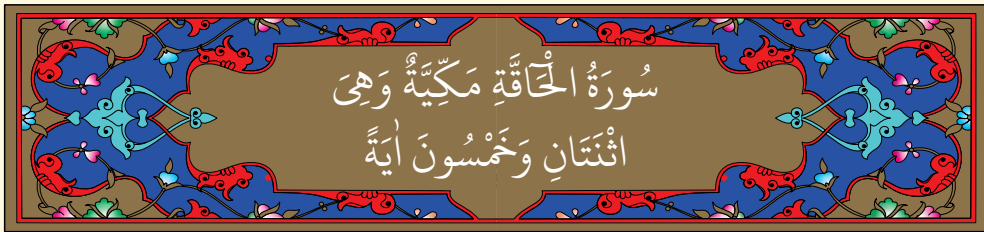 سُورَةُ الْحَاقَّةِ مَكِّيَّةٌ وَهِىَ
اثْنَتَانِ وَخَمْسُونَ اٰيَةً